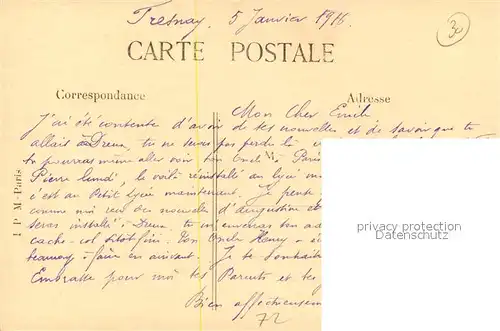 Tresnay, 5 Janvier 1916.
30
CARTE POSTALE
Correspondance
Adresse
Mon Cher Emile
J'ai été contente d'avoir de tes nouvelles et de savoir que tu
allait à Dreux, tu ne seras pas perdu là
tu pourras même aller voir ton Oncle à Paris
Pierre lundi, le voilà réinstallé au lycée
c'est au Petit lycée maintenant. Je pense
comme moi reçu des nouvelles d'augustine
seras installé à Dreux, tu m'enverras ton
cache-col sitôt fini. Ton Oncle Henry
en arrivant. Je te souhaite
Embrasse pour moi tes Parents et tes
Bien affectueusement
72
I P M - Paris
privacy protection
privacy protection